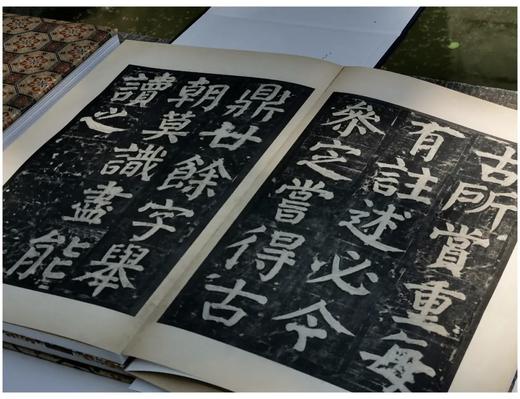 古所賞重每
有註述必令
參定嘗得古
鼎廿餘字舉
朝莫識盡能
讀之